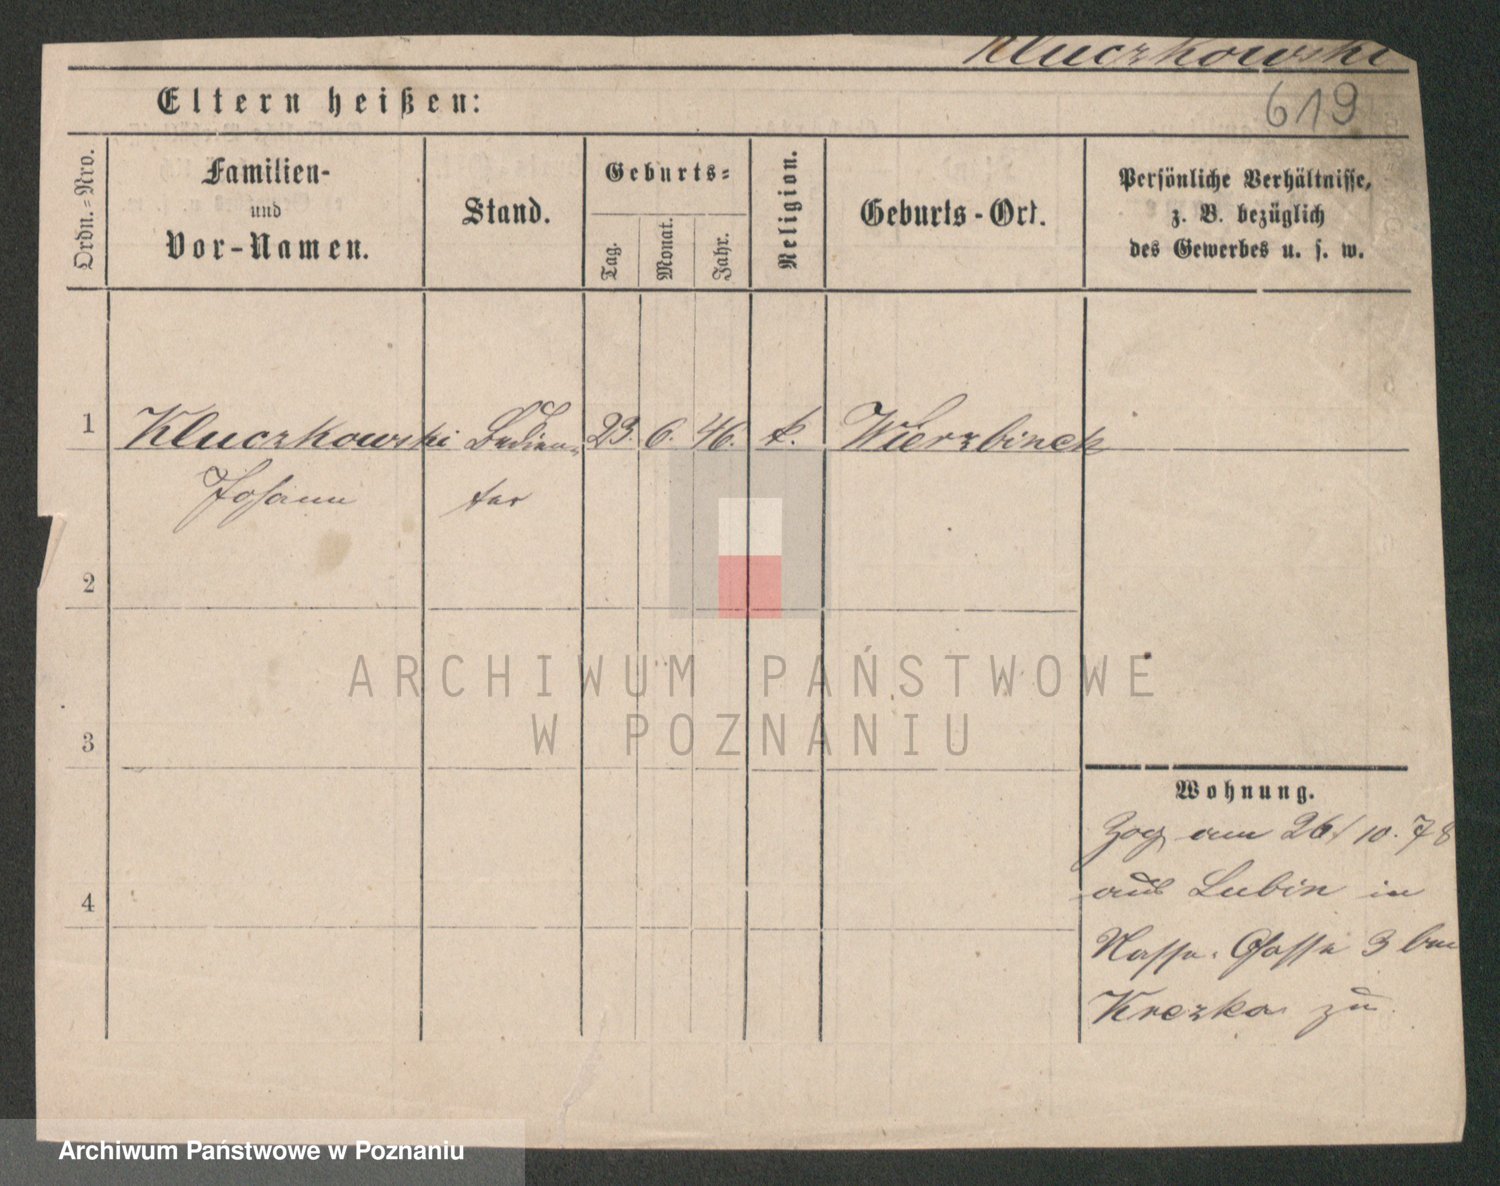 Kluczkowski
619
Eltern heißen:
Ordn.=Nro.
Familien-
und
Vor-Namen.
Stand.
Geburts=
Tag.
Monat.
Jahr.
Religion.
Geburts-Ort.
Persönliche Verhältnisse,
z. B. bezüglich
des Gewerbes u. s. w.
1 Kluczkowski Bedien= 23. 6. 46. k. Wierzbinek
Johann ter
2
3
4
Wohnung.
Zog am 26/10.78
aus Lubin in
Gasse 3 bei
Krezka zu
ARCHIWUM PAŃSTWOWE
W POZNANIU
Archiwum Państwowe w Poznaniu